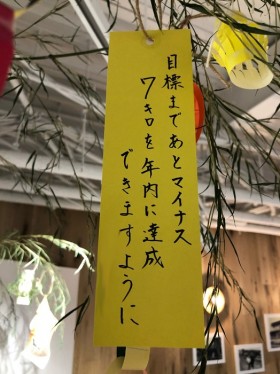 目標まであとマイナス
7キロを年内に達成
できますように